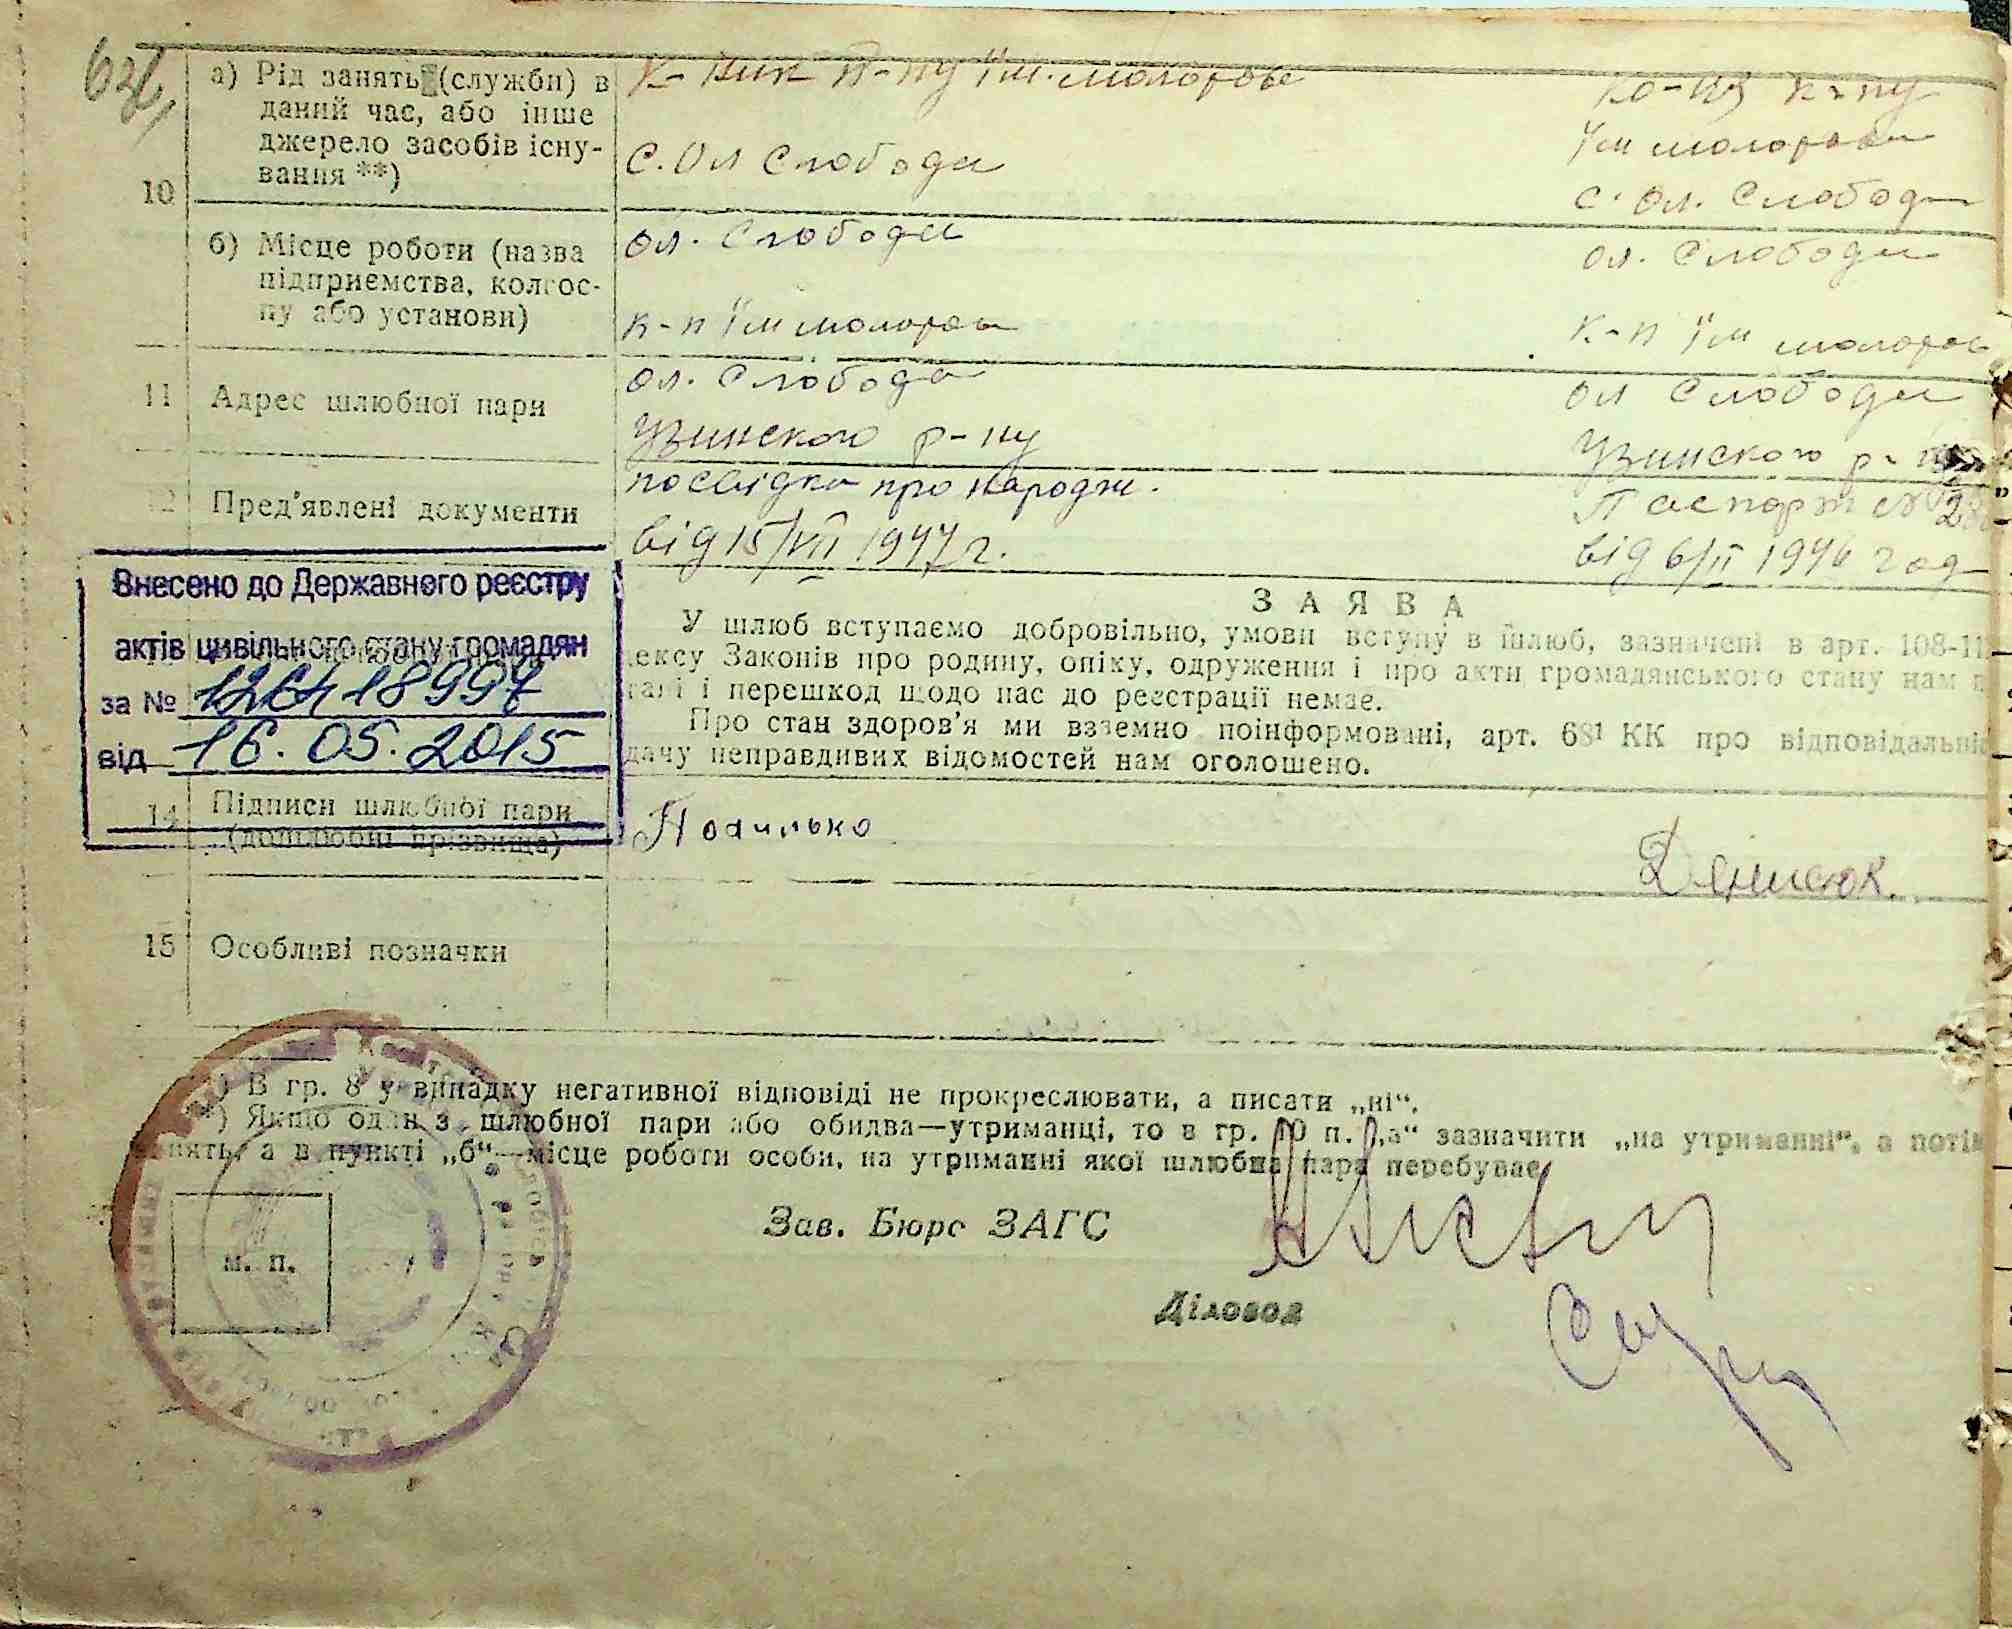 10
а) Рід занять (служби) в
даний час, або інше
джерело засобів існу-
вання **)
к-ник к-пу
с. Ол Слобода
к-пу
с. Ол. Слобода
б) Місце роботи (назва
підприємства, колгос-
пу або установи)
Ол. Слобода
к-п ім
Ол. Слобода
к-п ім
11
Адрес шлюбної пари
Ол. Слобода
Узинского р-ну
Ол Слобода
Узинского р-ну
12
Пред'явлені документи
посвідка про народж.
від 15/VII 1947 г.
Паспорт №
від 6/II 1946 год
Внесено до Державного реєстру
актів цивільного стану громадян
за №
від 16.05.2015
ЗАЯВА
У шлюб вступаємо добровільно, умови вступу в шлюб, зазначені в арт. 108-11
ексу Законів про родину, опіку, одруження і про акти громадянського стану нам
і перешкод щодо нас до реєстрації немає.
Про стан здоров'я ми взаємно поінформовані, арт. 68¹ КК про відповідальніс
дачу неправдивих відомостей нам оголошено.
14
Підписи шлюбної пари
(дошлюбні прізвища)
Денисюк.
15
Особливі позначки
*) В гр. 8 у випадку негативної відповіді не прокреслювати, а писати „ні“.
**) Якщо один з шлюбної пари або обидва—утриманці, то в гр. 10 п. „а“ зазначити „на утриманні“, а потім
нять, а в пункті „б“—місце роботи особи, на утриманні якої шлюбна пара перебуває
м. п.
Зав. Бюро ЗАГС
Діловод